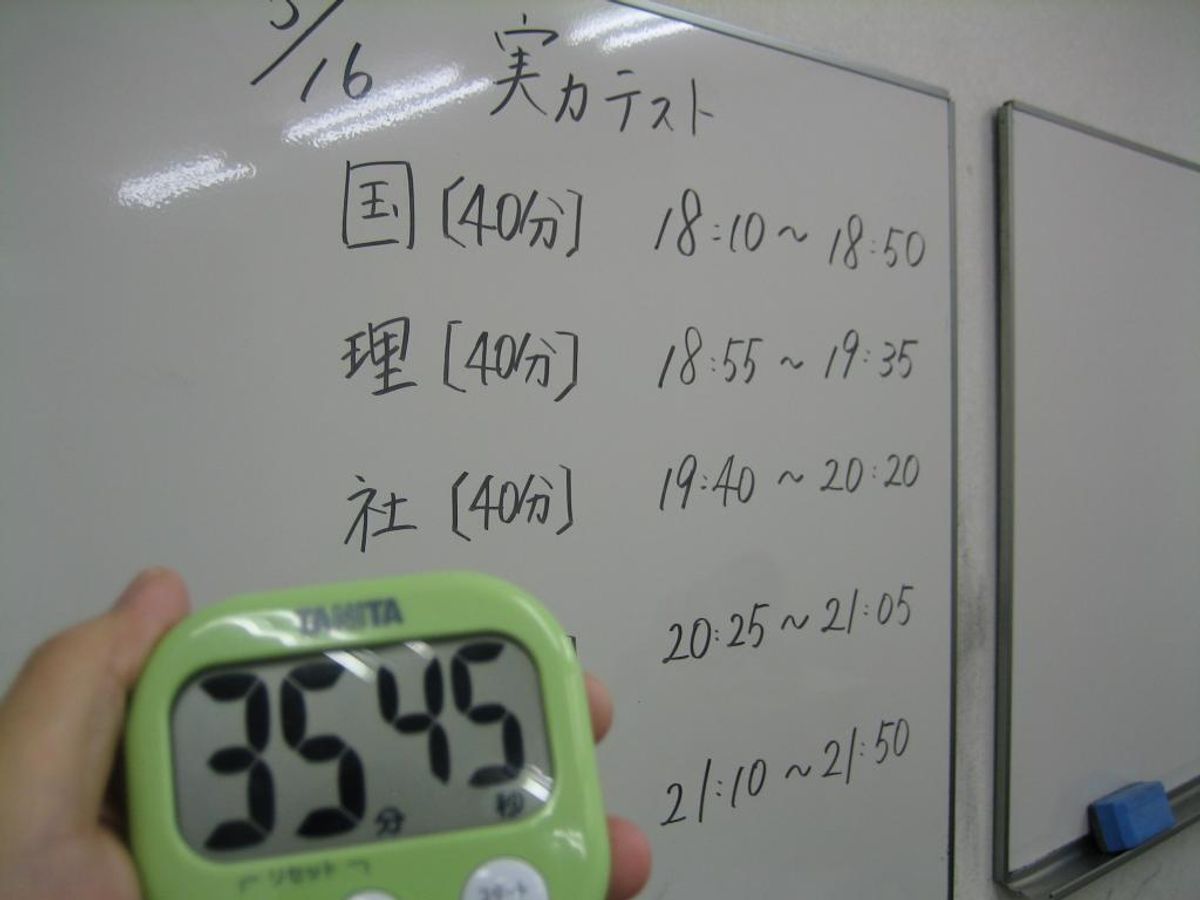 /16 実力テスト
国 [40分] 18:10～18:50
理 [40分] 18:55～19:35
社 [40分] 19:40～20:20
20:25～21:05
21:10～21:50
TANITA
35分45秒
リセット
スタート